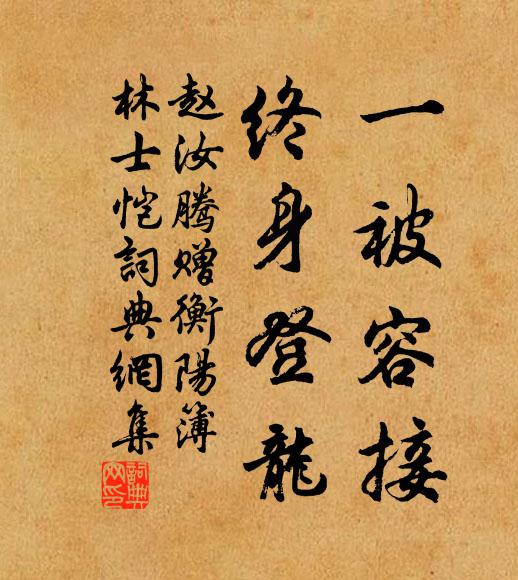 一被容接
终身登龍
赵汝腾赠衡陽簿
林士恺詞典網集
詞典網印